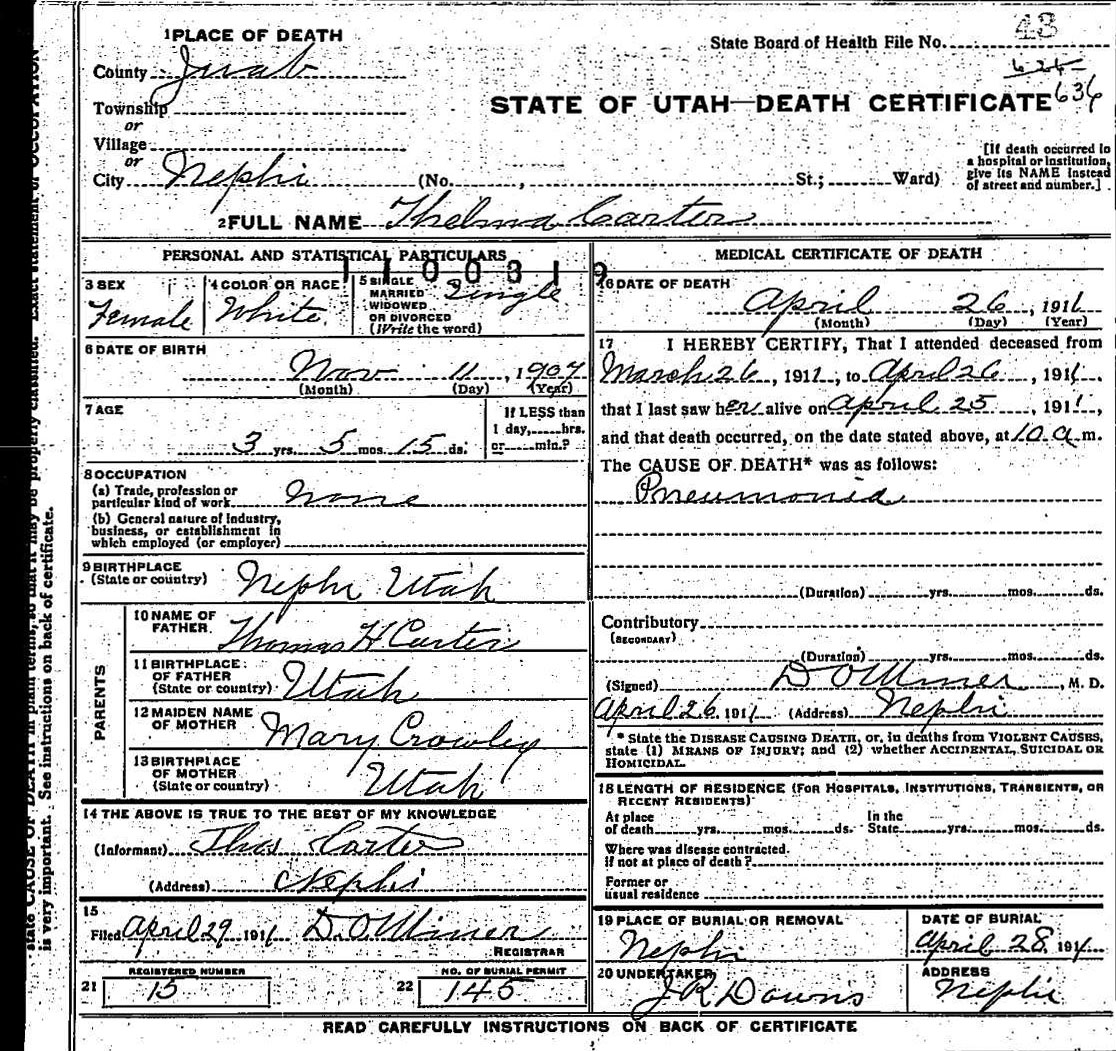 43
State Board of Health File No.
636
1 PLACE OF DEATH
County Juab
Township
or
Village
or
City Nephi (No. , St.; Ward)
STATE OF UTAH—DEATH CERTIFICATE
[If death occurred in a hospital or institution, give its NAME instead of street and number.]
2 FULL NAME Thelma Carter
PERSONAL AND STATISTICAL PARTICULARS
1100319
3 SEX
Female
4 COLOR OR RACE
White
5 SINGLE
MARRIED
WIDOWED
OR DIVORCED
(Write the word)
Single
6 DATE OF BIRTH
Nov 11, 1907
(Month) (Day) (Year)
7 AGE
3 yrs. 5 mos. 15 ds.
If LESS than
1 day, hrs.
or min.?
8 OCCUPATION
(a) Trade, profession or
particular kind of work None
(b) General nature of industry,
business, or establishment in
which employed (or employer)
9 BIRTHPLACE
(State or country) Nephi Utah
PARENTS
10 NAME OF
FATHER Thomas H Carter
11 BIRTHPLACE
OF FATHER
(State or country) Utah
12 MAIDEN NAME
OF MOTHER Mary Crowley
13 BIRTHPLACE
OF MOTHER
(State or country) Utah
14 THE ABOVE IS TRUE TO THE BEST OF MY KNOWLEDGE
(Informant) Thos Carter
(Address) Nephi
15
Filed April 29 1911 D.O Miner
REGISTRAR
REGISTERED NUMBER
21 15
NO. OF BURIAL PERMIT
22 145
MEDICAL CERTIFICATE OF DEATH
16 DATE OF DEATH
April 26, 1911
(Month) (Day) (Year)
17 I HEREBY CERTIFY, That I attended deceased from
March 26, 1911, to April 26, 1911.
that I last saw her alive on April 25, 1911,
and that death occurred, on the date stated above, at 10 a.m.
The CAUSE OF DEATH* was as follows:
Pneumonia
(Duration) yrs. mos. ds.
Contributory
(SECONDARY)
(Duration) yrs. mos. ds.
(Signed) D O Miner, M. D.
April 26, 1911 (Address) Nephi
* State the DISEASE CAUSING DEATH, or, in deaths from VIOLENT CAUSES,
state (1) MEANS OF INJURY; and (2) whether ACCIDENTAL, SUICIDAL OR
HOMICIDAL.
18 LENGTH OF RESIDENCE (FOR HOSPITALS, INSTITUTIONS, TRANSIENTS, OR
RECENT RESIDENTS)
At place
of death yrs. mos. ds. In the
State yrs. mos. ds.
Where was disease contracted.
if not at place of death?
Former or
usual residence
19 PLACE OF BURIAL OR REMOVAL
Nephi
DATE OF BURIAL
April 28, 1911
20 UNDERTAKER
J R Downs
ADDRESS
Nephi
READ CAREFULLY INSTRUCTIONS ON BACK OF CERTIFICATE
state CAUSE OF DEATH in plain terms, so that it may be properly classified. Exact statement of OCCUPATION
is very important. See instructions on back of certificate.